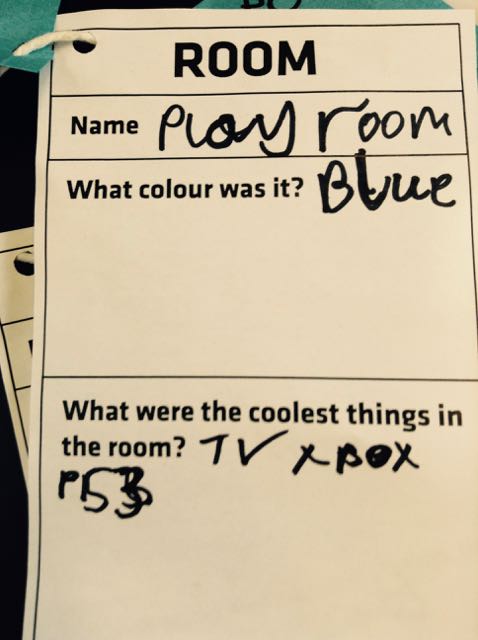 ROOM
Name Play room
What colour was it? Blue
What were the coolest things in
the room? TV XBOX
PS3